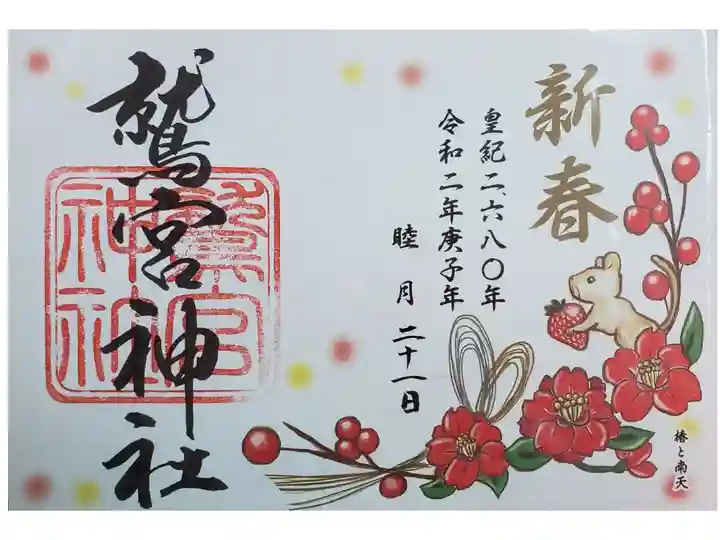 新春
皇紀二、六八〇年
令和二年庚子年
睦月二十一日
鷲宮神社
鷲宮
神社
椿と南天